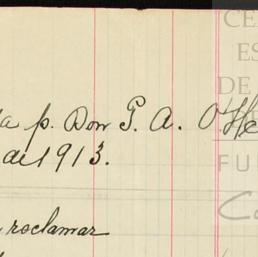 p. Don P. A. O'He
de 1913.
reclamar
CE
ES
DE
FU
C